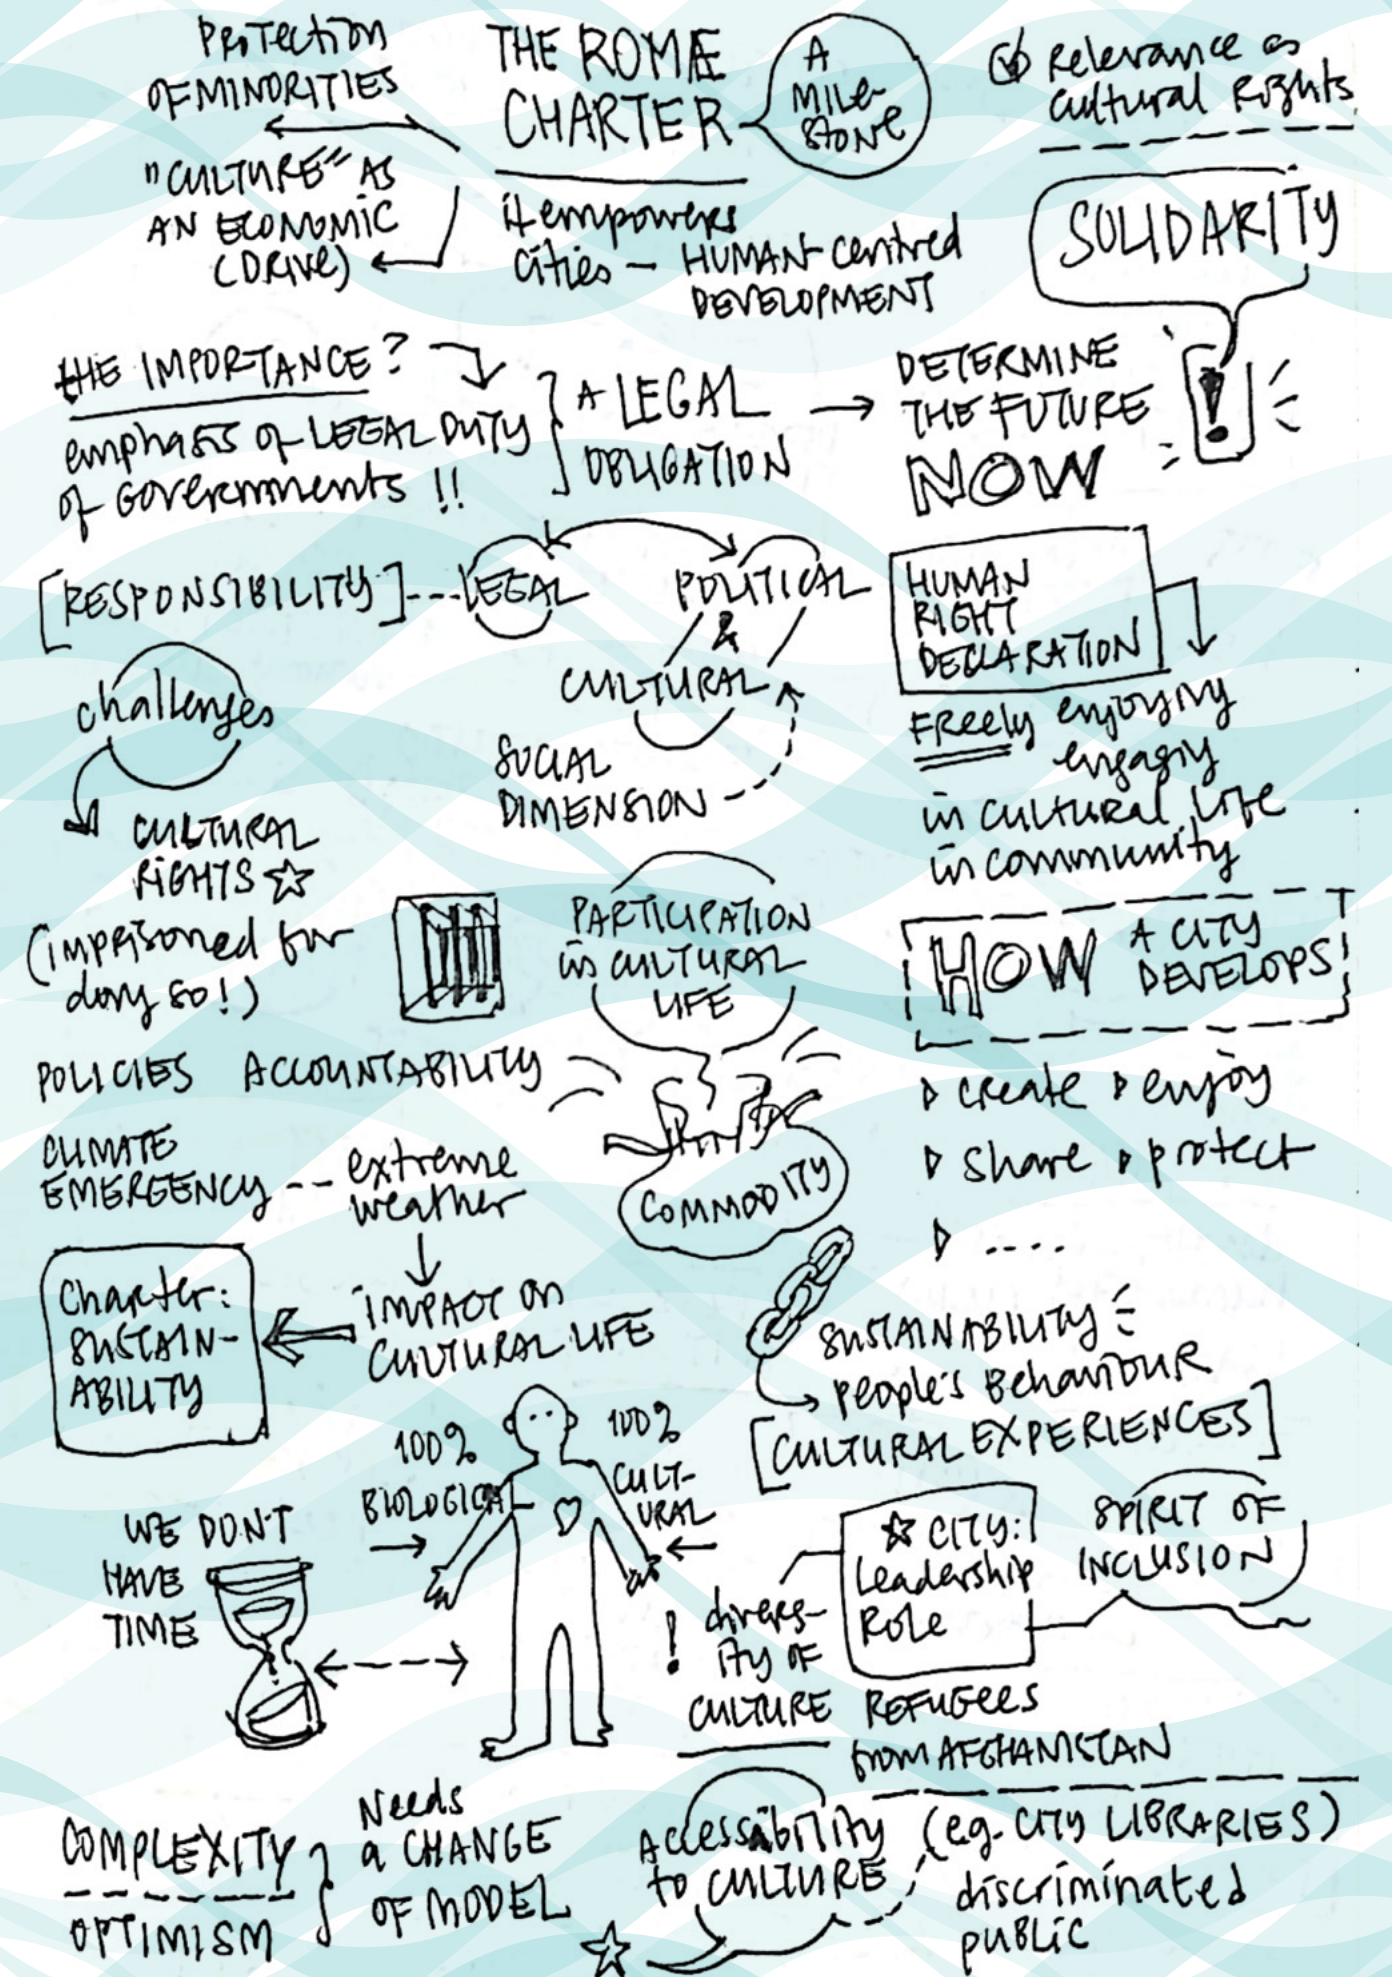 PROTECTION
OF MINORITIES
"CULTURE" AS
AN ECONOMIC
(DRIVE)
THE ROME
CHARTER
A
MILE-
STONE
it empowers
cities - HUMAN-centred
DEVELOPMENT
Relevance as
cultural Rights
SOLIDARITY
!
THE IMPORTANCE?
emphasis of LEGAL DUTY
of Governments !!
A LEGAL
OBLIGATION
DETERMINE
THE FUTURE
NOW
[RESPONSIBILITY]---LEGAL
POLITICAL
&
CULTURAL
SOCIAL
DIMENSION
HUMAN
RIGHT
DECLARATION
FReely enjoying
engaging
in cultural life
in community
challenges
CULTURAL
RIGHTS
(imprisoned for
doing so!)
PARTICIPATION
in CULTURAL
LIFE
COMMODITY
HOW A CITY
DEVELOPS
create enjoy
share protect
....
POLICIES ACCOUNTABILITY
CLIMATE
EMERGENCY -- extreme
weather
IMPACT on
CULTURAL LIFE
Charter:
SUSTAIN-
ABILITY
SUSTAINABILITY
people's Behaviour
[CULTURAL EXPERIENCES]
100%
BIOLOGICAL
100%
CULT-
URAL
WE DON'T
HAVE
TIME
CITY:
Leadership
Role
SPIRIT OF
INCLUSION
! divers-
ity of
CULTURE
REFUGEES
from AFGHANISTAN
COMPLEXITY
OPTIMISM
Needs
a CHANGE
OF MODEL
Accessibility
to CULTURE
(e.g. CITY LIBRARIES)
discriminated
public